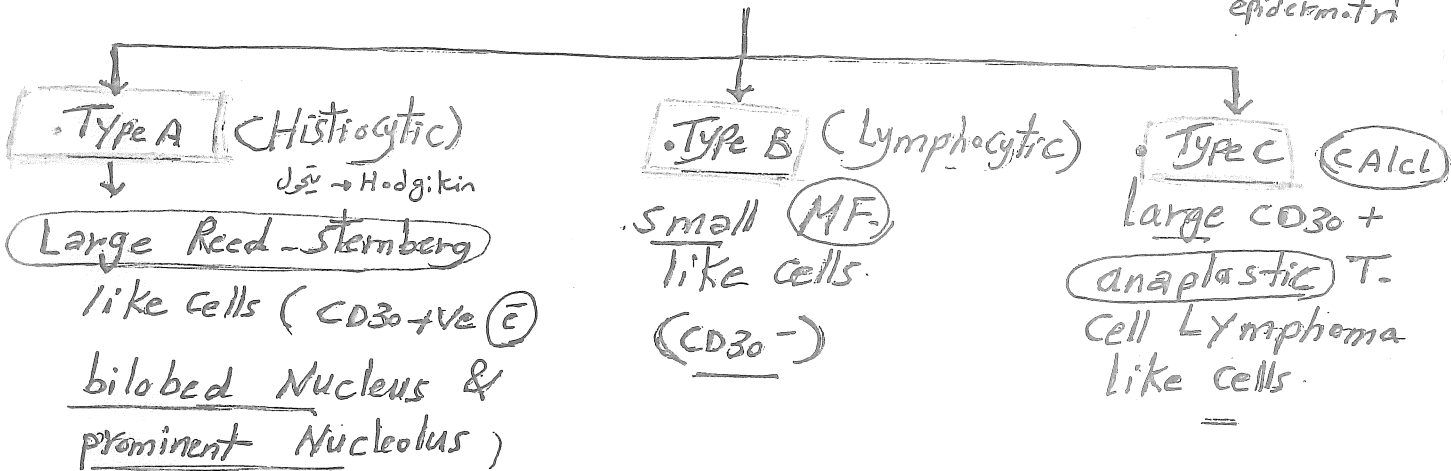 epidermotri
. Type A (Histiocytic)
→ Hodgikin
Large Reed-Sternberg
like cells (CD30 +ve c̄
bilobed Nucleus &
prominent Nucleolus)
. Type B (Lymphocytic)
.small MF.
like cells.
(CD30 -)
. Type C (cAlcl)
large CD30 +
anaplastic T.
cell Lymphoma
like cells.